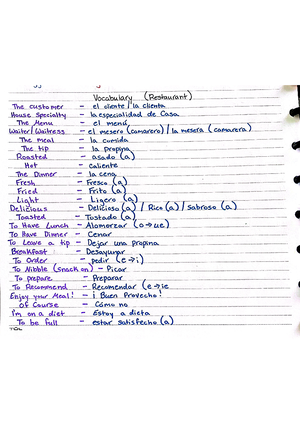 Vocabulary (Restaurant)
The customer - el cliente / la clienta
House Specialty - la especialidad de Casa
The Menu - el menú
Waiter/Waitress - el mesero (camarero) / la mesera (camarera)
The meal - la comida
The tip - la propina
Roasted - asado (a)
Hot - caliente
The Dinner - la cena
Fresh - Fresco (a)
Fried - Frito (a)
Light - Ligero (a)
Delicious - Delicioso (a) / Rico (a) / Sabroso (a)
Toasted - Tostado (a)
To Have Lunch - Alomorzar (o→ue)
To Have Dinner - Cenar
To Leave a tip - Dejar una propina
Breakfast - Desayunar
To Order - pedir (e→i)
To Nibble (Snack on) - Picar
To prepare - Preparar
To Recommend - Recomendar (e→ie
Enjoy your Meal! - ¡ Buen Provecho!
Of Course - Cómo no
I'm on a diet - Estoy a dieta
To be full - estar satisfecho (a)